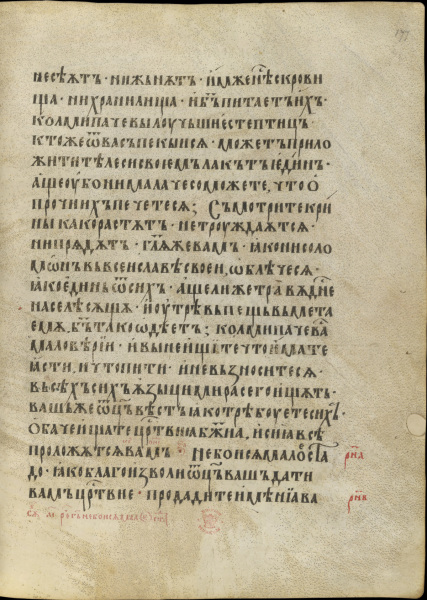 не сѣѧтъ · ни жьнѧтъ · и҆мже нѣ скрови
ща · ни хранилища · и҆ б҃ъ питаетъ и҆хъ ·
колми паче вы лоучьши есте птицъ ·
кто же ѿ васъ пекыисѧ · можетъ прило
жити тѣлеси своемъ лакътъ единъ ·
аще оубо ни мала чесо можете, что о
прочиихъ печетесѧ; Съмотрите кри
ны како растѧтъ · не троуждаѧтсѧ ·
ни прѧдѧтъ · гл҃ѧ же вамъ · ꙗко ни соло
мѡнъ въ всеи славѣ своеи, ѡблѣчесѧ ·
ꙗко единъ ѿ сихъ · аще ли же трѣвѫ дне
на селѣ сѫщѫ · и оутрѣ въ пещь въмета
емѫ, б҃ъ тако ѡдѣетъ; колми паче ва
маловѣрїи · и вы не ищѣте что имате
ꙗсти, и что пити · и не възноситесѧ ·
въсѣхъ сихъ ѧзыци мира сего ищѫтъ ·
вашъ же ѡц҃ъ вѣстъ ꙗко трѣбоуете сихъ ·
Обаче ищате црⷭ҇твиа б҃жиа, и сиа всѣ
приложѧтсѧ вамъ Не боисѧ малое ста
до · ꙗко благоизволи ѡц҃ъ вашъ дати
вамъ црⷭ҇твие · продадите имѣнїа ва